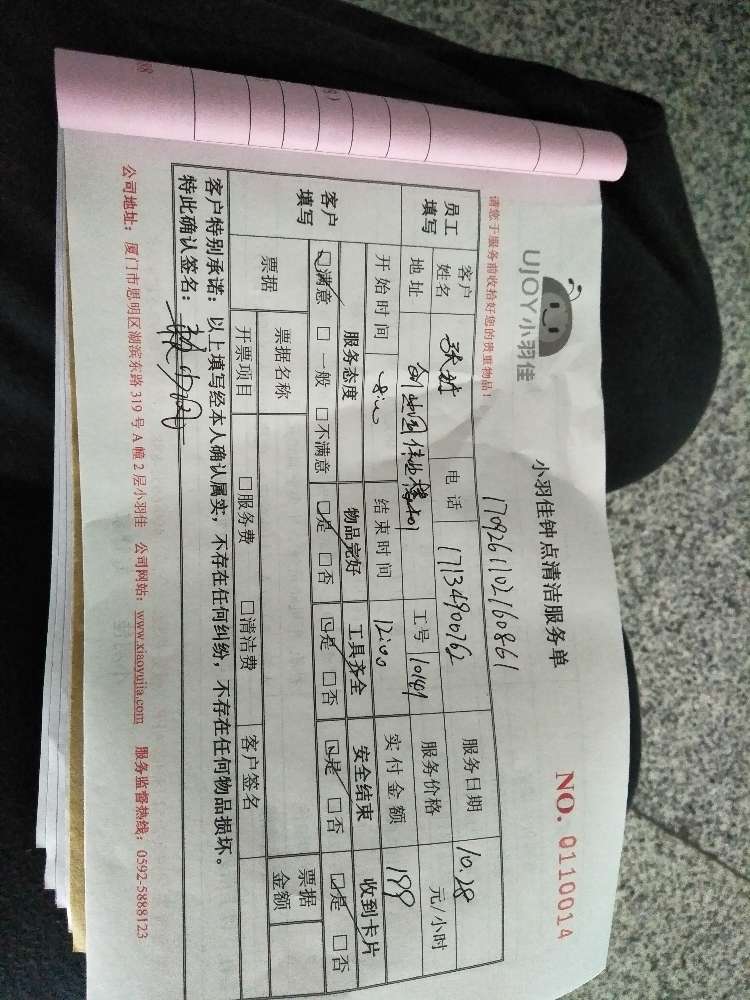 UJOY小羽佳
小羽佳钟点清洁服务单
NO. 0110014
请您于服务前收拾好您的贵重物品!
1709261102160861
员工填写 客户姓名 电话 17134900762 服务日期 10.28
地址 工号 10149 服务价格 元/小时
开始时间 8:00 结束时间 12:00 实付金额 199
客户填写 服务态度 物品完好 工具齐全 安全结束 收到卡片
☑满意 □一般 □不满意 ☑是 □否 ☑是 □否 ☑是 □否 ☑是 □否
票据 票据名称 票据金额
开票项目 □服务费 □清洁费 客户签名
客户特别承诺:以上填写经本人确认属实,不存在任何纠纷,不存在任何物品损坏。
特此确认签名:
公司地址:厦门市思明区湖滨东路 319 号 A 幢 2 层小羽佳 公司网站:www.xiaoyujia.com 服务监督热线:0592-5888123